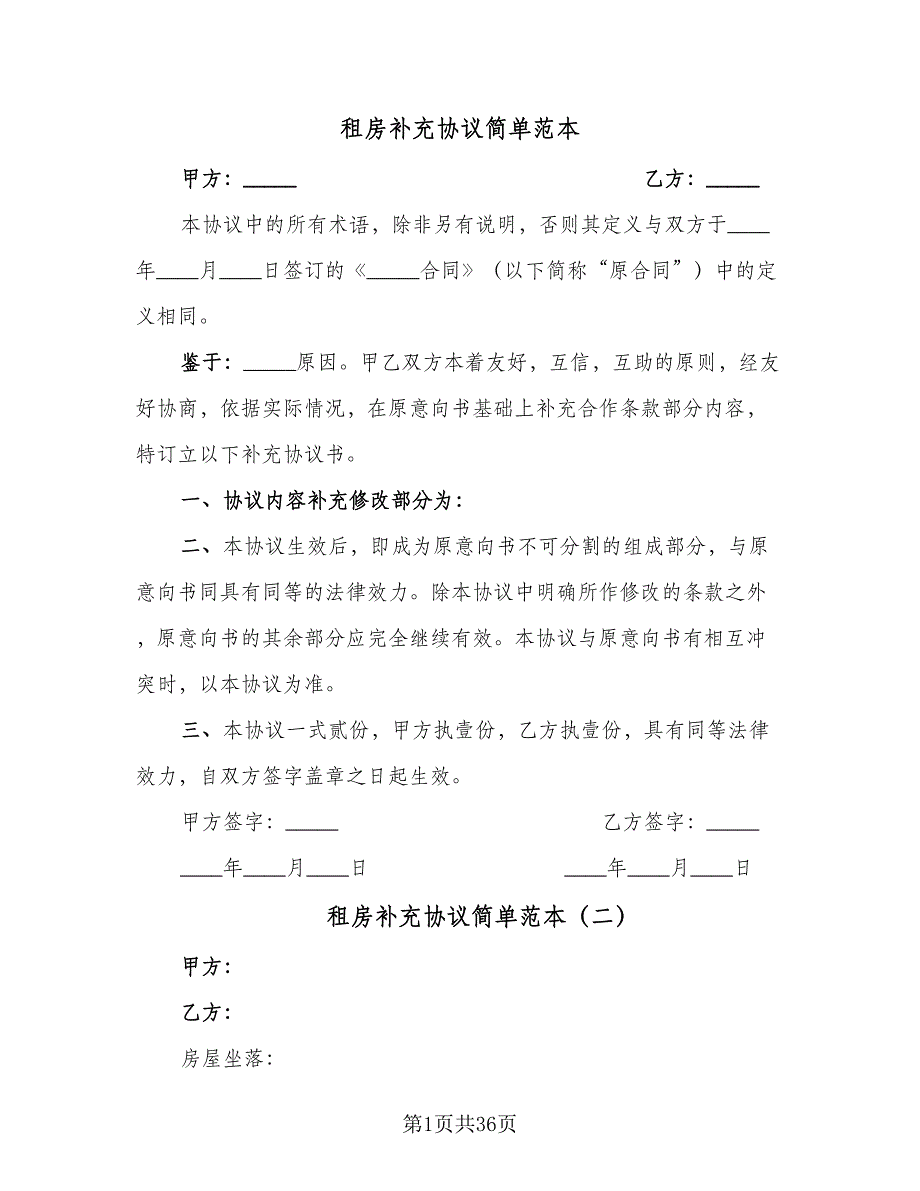 租房补充协议简单范本
甲方：_____ 乙方：_____
本协议中的所有术语，除非另有说明，否则其定义与双方于____
年____月____日签订的《_____合同》（以下简称“原合同”）中的定
义相同。
鉴于：_____原因。甲乙双方本着友好，互信，互助的原则，经友
好协商，依据实际情况，在原意向书基础上补充合作条款部分内容，
特订立以下补充协议书。
一、协议内容补充修改部分为：
二、本协议生效后，即成为原意向书不可分割的组成部分，与原
意向书同具有同等的法律效力。除本协议中明确所作修改的条款之外
，原意向书的其余部分应完全继续有效。本协议与原意向书有相互冲
突时，以本协议为准。
三、本协议一式贰份，甲方执壹份，乙方执壹份，具有同等法律
效力，自双方签字盖章之日起生效。
甲方签字：_____ 乙方签字：_____
____年____月____日 ____年____月____日
租房补充协议简单范本（二）
甲方：
乙方：
房屋坐落：
第1页共36页